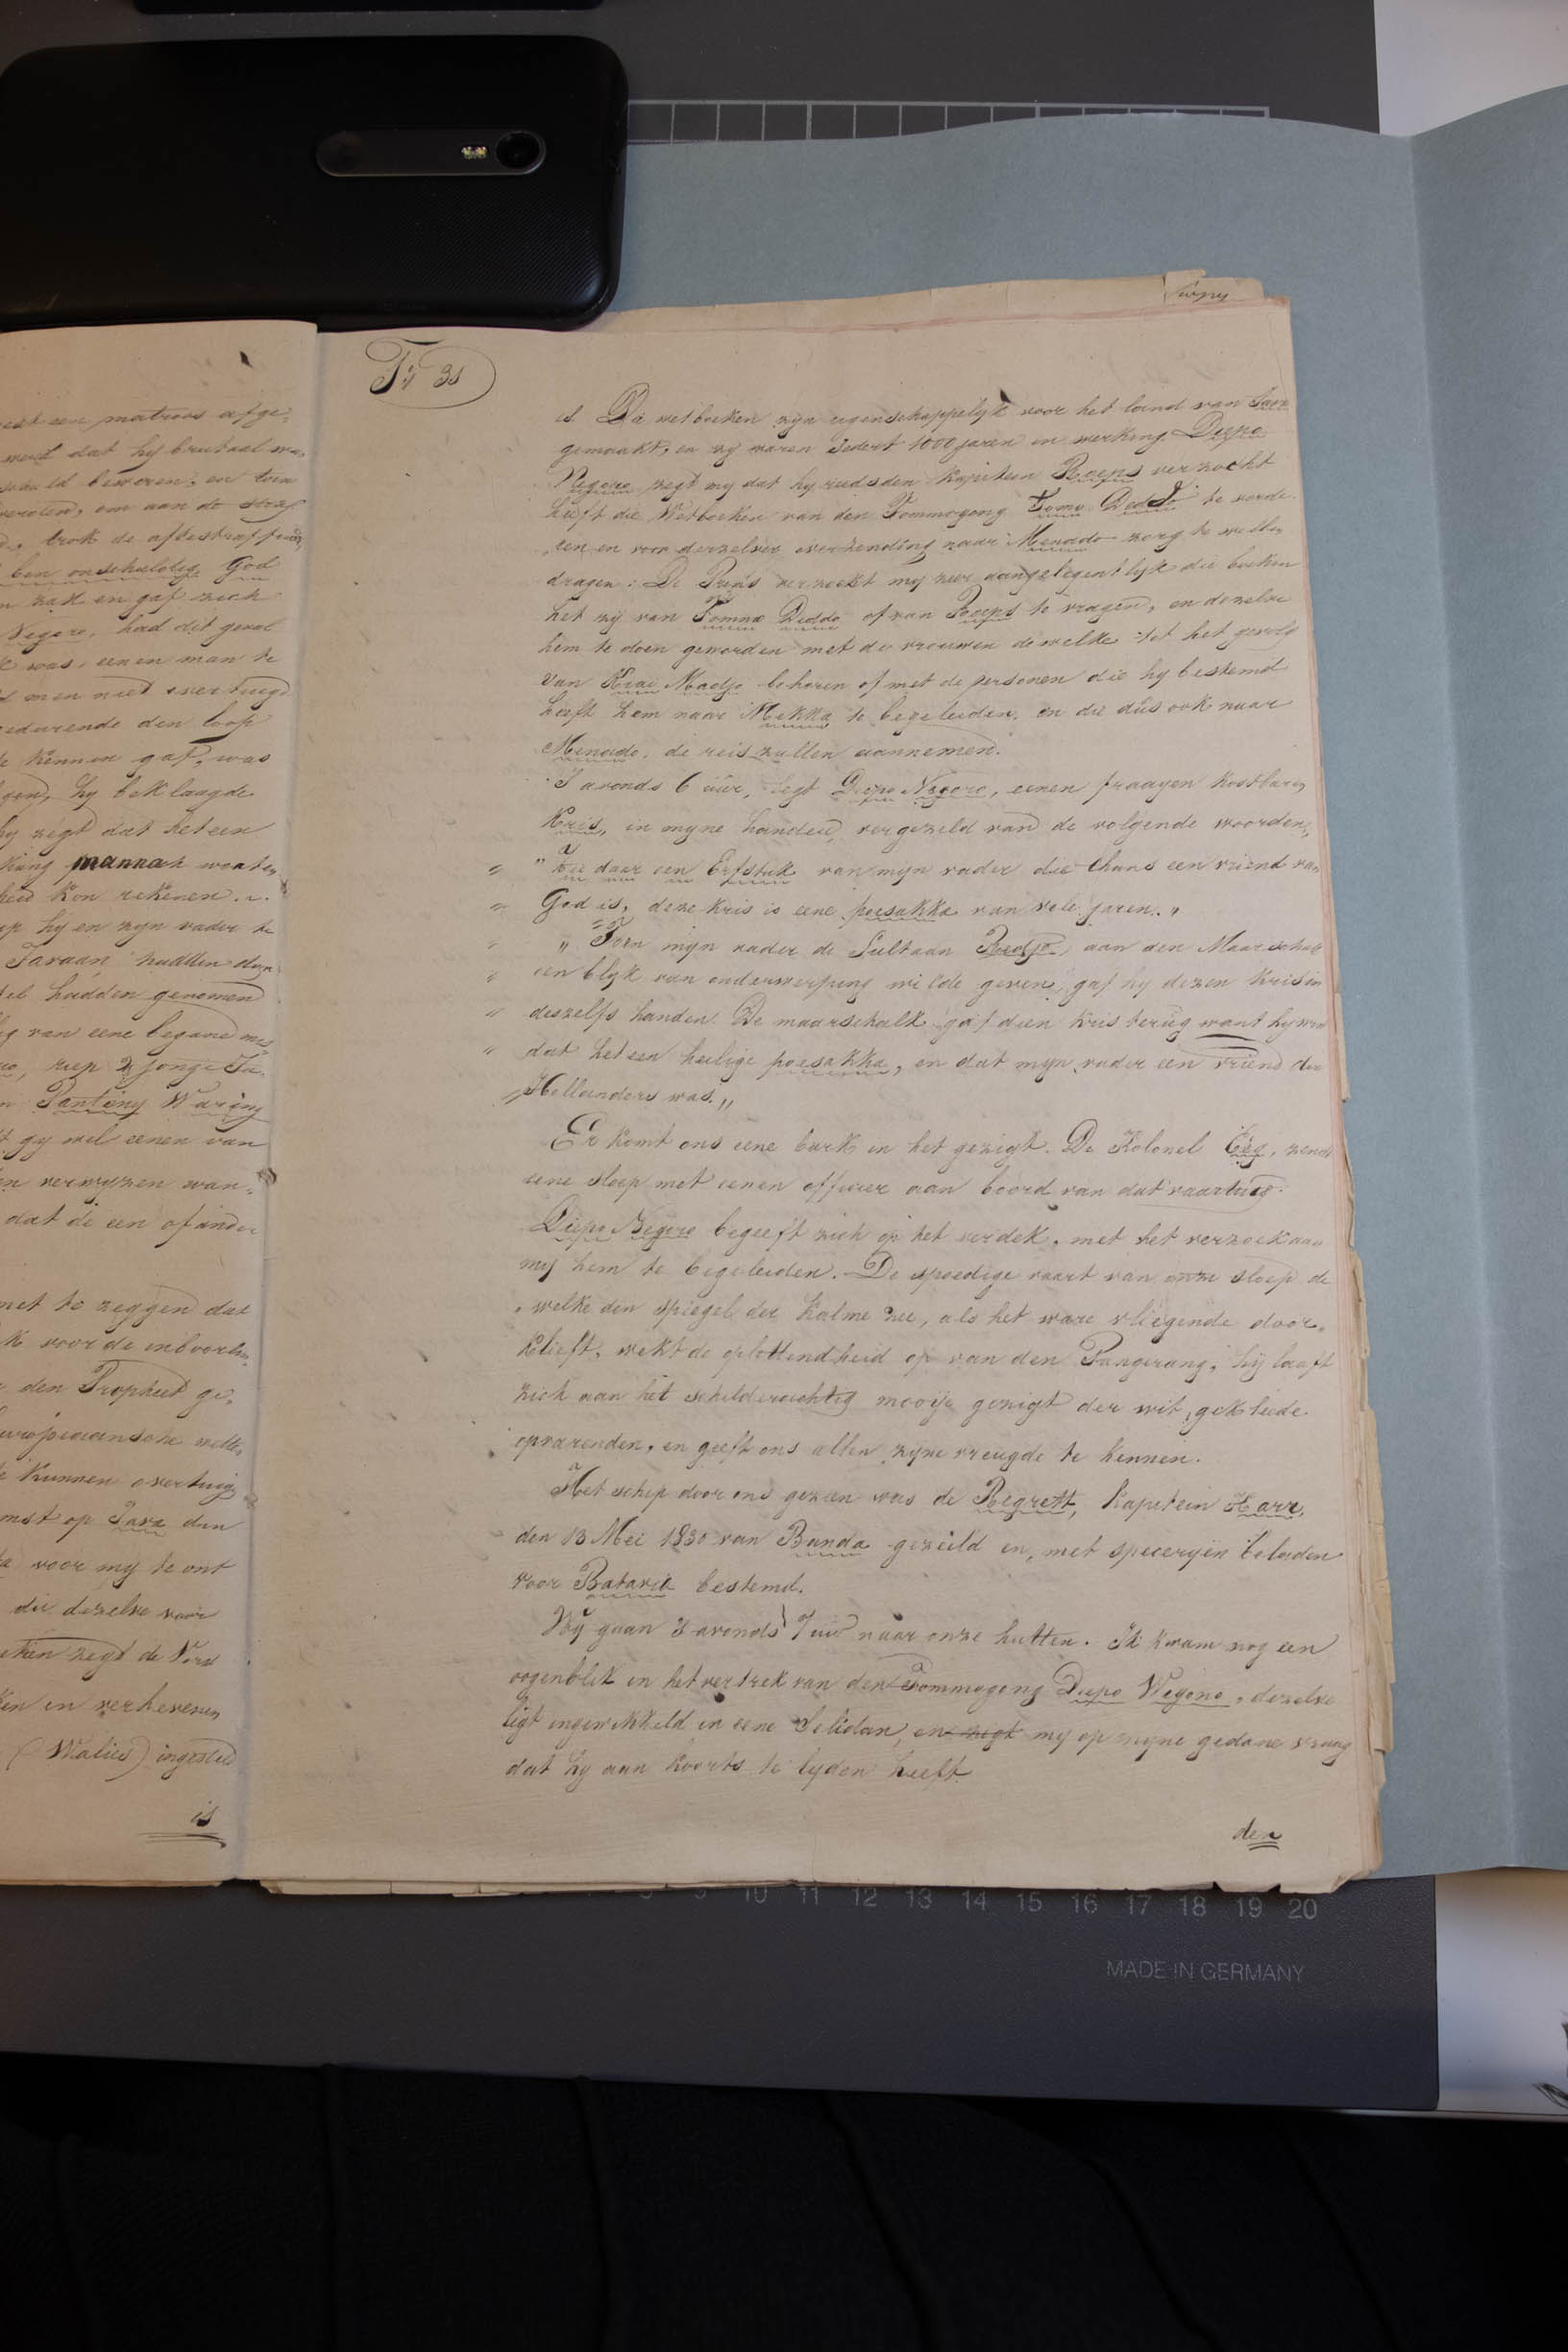 est een matroos afge-
werd dat hij brutaal wa,
schuld beweren; en toen
om aan de straf
trok de aftestraffen
ben onschuldig God
zak en gaf zich
Negoro, had dit geval
was, eenen man te
men niet overtuigd
gedurende den loop
te kennen gaf, was
hij beklaagde
hij zegt dat het een
mannah
kon rekenen.
op hij en zijn vader te
hadden
hadden genomen
van eene
riep 2 jonge Ja-
Pantong Waring
gij wil eenen van
verwijzen wan-
dat de een of ander
met te zeggen dat
k voor de inboorlin-
den Propheet ge-
Europeaansche wette,
te kunnen overtuig
mst op Java den
voor mij te ont
die dezelve voor
zegt de Vorst
in verhevenen
(Walies) ingesteld
is
F: 31
is. De wetboeken zijn eigenschappelijk voor het land van Java
gemaakt, en zij waren sedert 1000 jaren in werking. Diepo
Negoro zegt mij dat hij reeds den kapitein Roeps verzocht
heeft die Wetboeken van den Tommogong Tomo Deddo te vorde-
ren en voor derzelver overzending naar Menado zorg te willen
dragen: De Prins verzoekt mij zeer aangelegentlijk die boeken
het zij van Tomno Deddo of van Roeps te vragen, en dezelve
hem te doen geworden met de vrouwen dewelke tot het gevolg
van Kiai Madjo behoren of met de personen die hij bestemd
heeft hem naar Mekka te begeleiden, en die dus ook naar
Menado, de reis zullen aannemen.
S avonds 6 uur, legt Diepo Negoro, eenen fraayen kostbaren
Kris, in mijne handen, vergezeld van de volgende woorden,
" " Zie daar een Erfstuk van mijn vader die thans een vriend van
" God is, deze kris is eene poesakka van vele jaren. "
" " Toen mijn vader de Sultaan Redjo, aan den Maarschalk
" een blijk van onderwerping wilde geven, gaf hij dezen kris in
" deszelfs handen. De maarschalk gaf dien kris terug want hij
" dat het een heilige poesakka, en dat mijn vader een vriend der
" Hollanders was. "
Er komt ons eene bark in het gezigt. De Kolonel zend
eene sloep met eenen officier aan boord van dat vaartuig.
Diepo Negoro begeeft zich op het verdek, met het verzoek aan
mij hem te begeleiden. De spoedige vaart van onze sloep de
welke den spiegel der kalme zee, als het ware vliegende door-
klieft, wekt de opletttendheid op van den Pangerang, hij laaft
zich aan het schilderachtig mooije gezigt der wit gekleede
opvarenden, en geeft ons allen zijne vreugde te kennen.
Het schip door ons gezien was de Regrett, kapitein Harr,
den 13 Mei 1830 van Banda gezeild en, met specerijen beladen
voor Batavia bestemd.
Wij gaan s avonds 7 uur naar onze hutten. Ik kwam nog een
oogenblik in het vertrek van den Tommogong Diepo Wegono, dezelve
ligt ingewikkeld in eene Selidan, en zegt mij op mijne gedane vraag
dat hij aan koorts te lijden heeft.
den
10 11 12 13 14 15 16 17 18 19 20
MADE IN GERMANY